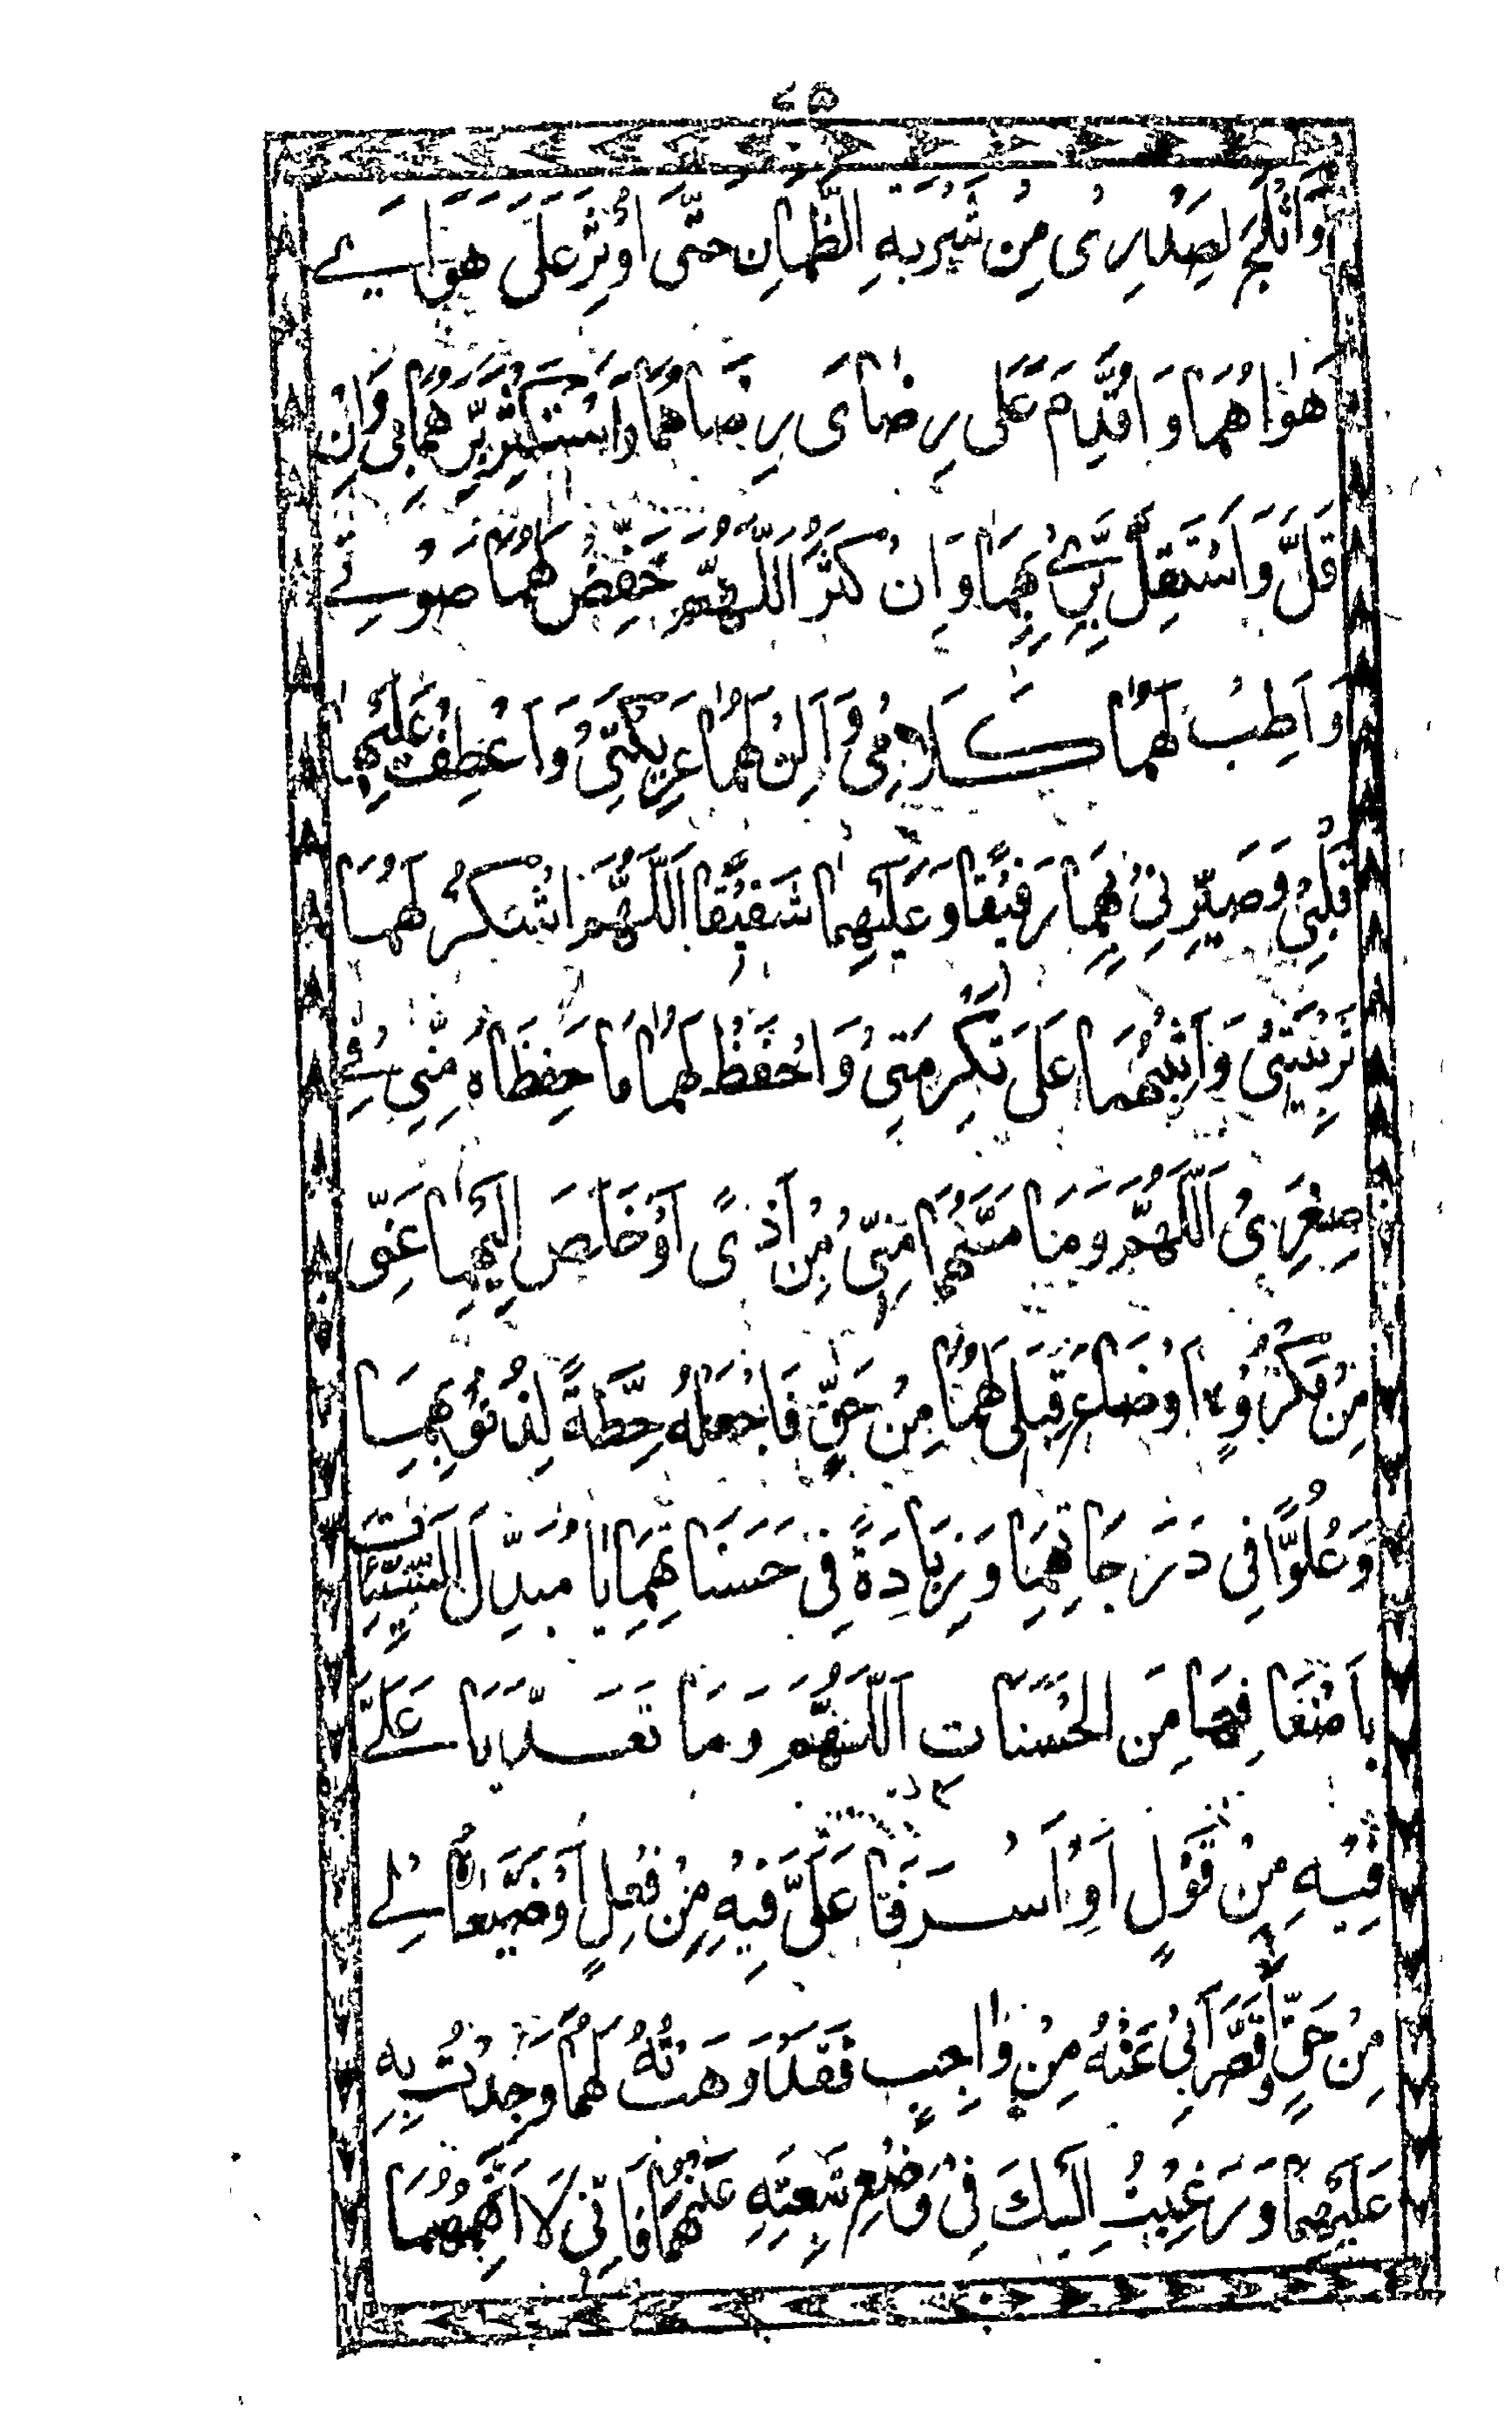 ۷۵
وَاَثْلَجَ لِصَدْرِىْ مِنْ شَرْبَةِ الظَّمْاٰنِ حَتّٰى اُوْثِرَ عَلٰى هَوَاىَ
هَوٰاهُمَا وَاُقَدِّمَ عَلٰى رِضَاىَ رِضَاهُمَا وَاَسْتَكْثِرَ بِرَّهُمَا بِىْ وَاِنْ
قَلَّ وَاَسْتَقِلَّ بِرِّىْ بِهِمَا وَاِنْ كَثُرَ اَللّٰهُمَّ خَفِّضْ لَهُمَا صَوْتِىْ
وَاَطِبْ لَهُمَا كَلَامِىْ وَاَلِنْ لَهُمَا عَرِيْكَتِىْ وَاعْطِفْ عَلَيْهِمَا
قَلْبِىْ وَصَيِّرْنِىْ بِهِمَا رَفِيْقًا وَعَلَيْهِمَا شَفِيْقًا اَللّٰهُمَّ اشْكُرْ لَهُمَا
تَرْبِيَتِىْ وَاَثِبْهُمَا عَلٰى تَكْرِمَتِىْ وَاحْفَظْ لَهُمَا مَا حَفِظَاهُ مِنِّىْ فِىْ
صِغَرِىْ اَللّٰهُمَّ وَمَا مَسَّهُمَا مِنِّىْ مِنْ اَذًى اَوْ خَلَصَ اِلَيْهِمَا عَنِّىْ
مِنْ مَكْرُوْهٍ اَوْ ضَاعَ قِبَلِىْ لَهُمَا مِنْ حَقٍّ فَاجْعَلْهُ حِطَّةً لِذُنُوْبِهِمَا
وَعُلُوًّا فِىْ دَرَجَاتِهِمَا وَزِيَادَةً فِىْ حَسَنَاتِهِمَا يَا مُبَدِّلَ السَّيِّئَاتِ
بِاَضْعَافِهَا مِنَ الْحَسَنَاتِ اَللّٰهُمَّ وَمَا تَعَدَّيَا عَلَىَّ
فِيْهِ مِنْ قَوْلٍ اَوْ اَسْرَفَا عَلَىَّ فِيْهِ مِنْ فِعْلٍ اَوْ ضَيَّعَاهُ لِىْ
مِنْ حَقٍّ اَوْ قَصَّرَا بِىْ عَنْهُ مِنْ وَاجِبٍ فَقَدْ وَهَبْتُهُ لَهُمَا وَجُدْتُ بِهِ
عَلَيْهِمَا وَرَغِبْتُ اِلَيْكَ فِىْ وَضْعِ تَبِعَتِهِ عَنْهُمَا فَاِنِّىْ لَا اَتَّهِمُهُمَا